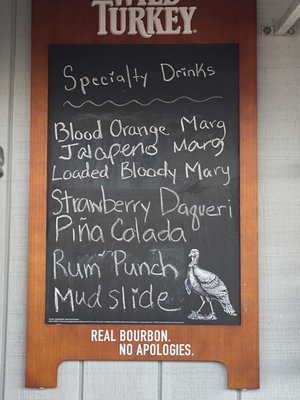 WILD
TURKEY.
Specialty Drinks
Blood Orange Marg
Jalapeno Marg
Loaded Bloody Mary
Strawberry Daqueri
Piña Colada
Rum Punch
Mudslide
REAL BOURBON.
NO APOLOGIES.